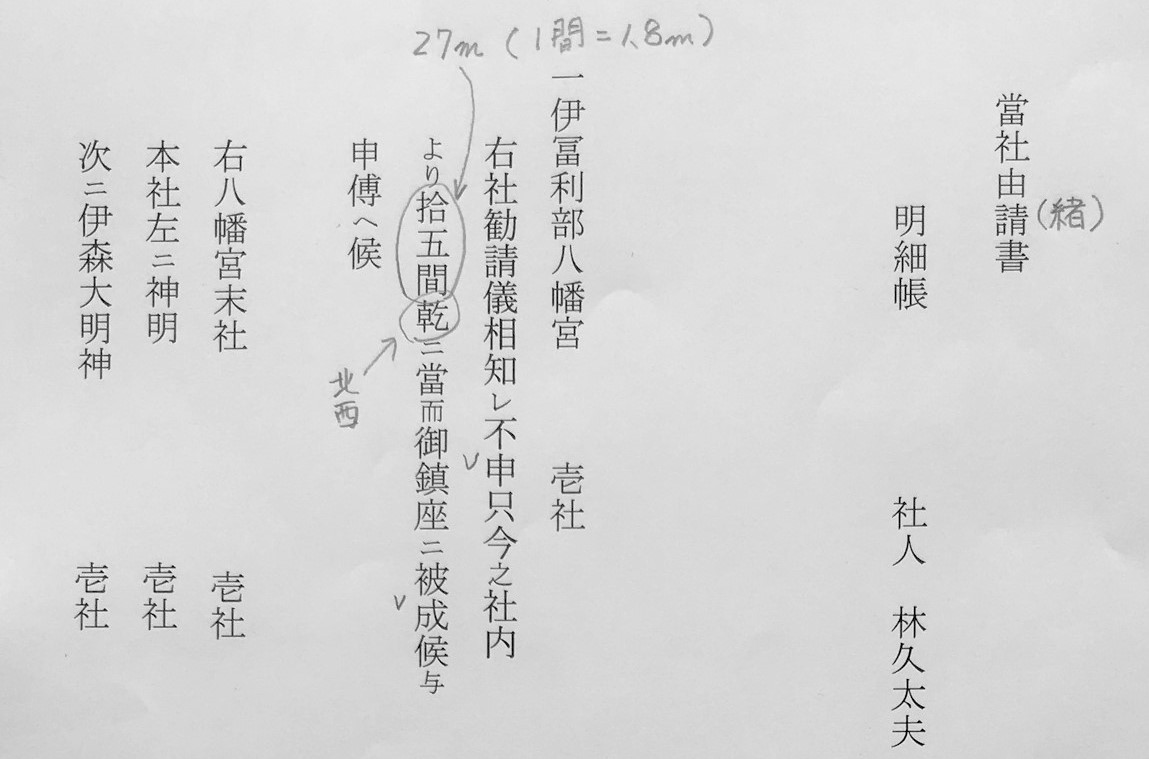 當社由請書
(緒)
明細帳 社人 林久太夫
27m(1間=1.8m)
一伊冨利部八幡宮 壱社
右社勧請儀相知レ不申只今之社内
より拾五間乾ニ當而御鎮座ニ被成候与
北西
申傳ヘ候
右八幡宮末社 壱社
本社左ニ神明 壱社
次ニ伊森大明神 壱社